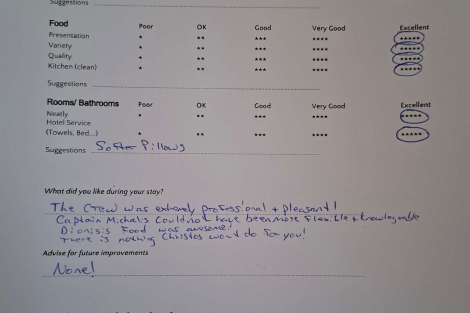 Suggestions
Food Poor OK Good Very Good Excellent
Presentation * ** *** **** *****
Variety * ** *** **** *****
Quality * ** *** **** *****
Kitchen (clean) * ** *** **** *****
Suggestions
Rooms/ Bathrooms Poor OK Good Very Good Excellent
Neatly * ** *** **** *****
Hotel Service
(Towels, Bed...) * ** *** **** *****
Suggestions Softer Pillows
What did you like during your stay?
The Crew was extremely professional & pleasant!
Captain Michalis could not have been more flexible & knowlegeable
Dionisis Food was awesome!
There is nothing Christos won't do for you!
Advise for future improvements
None!